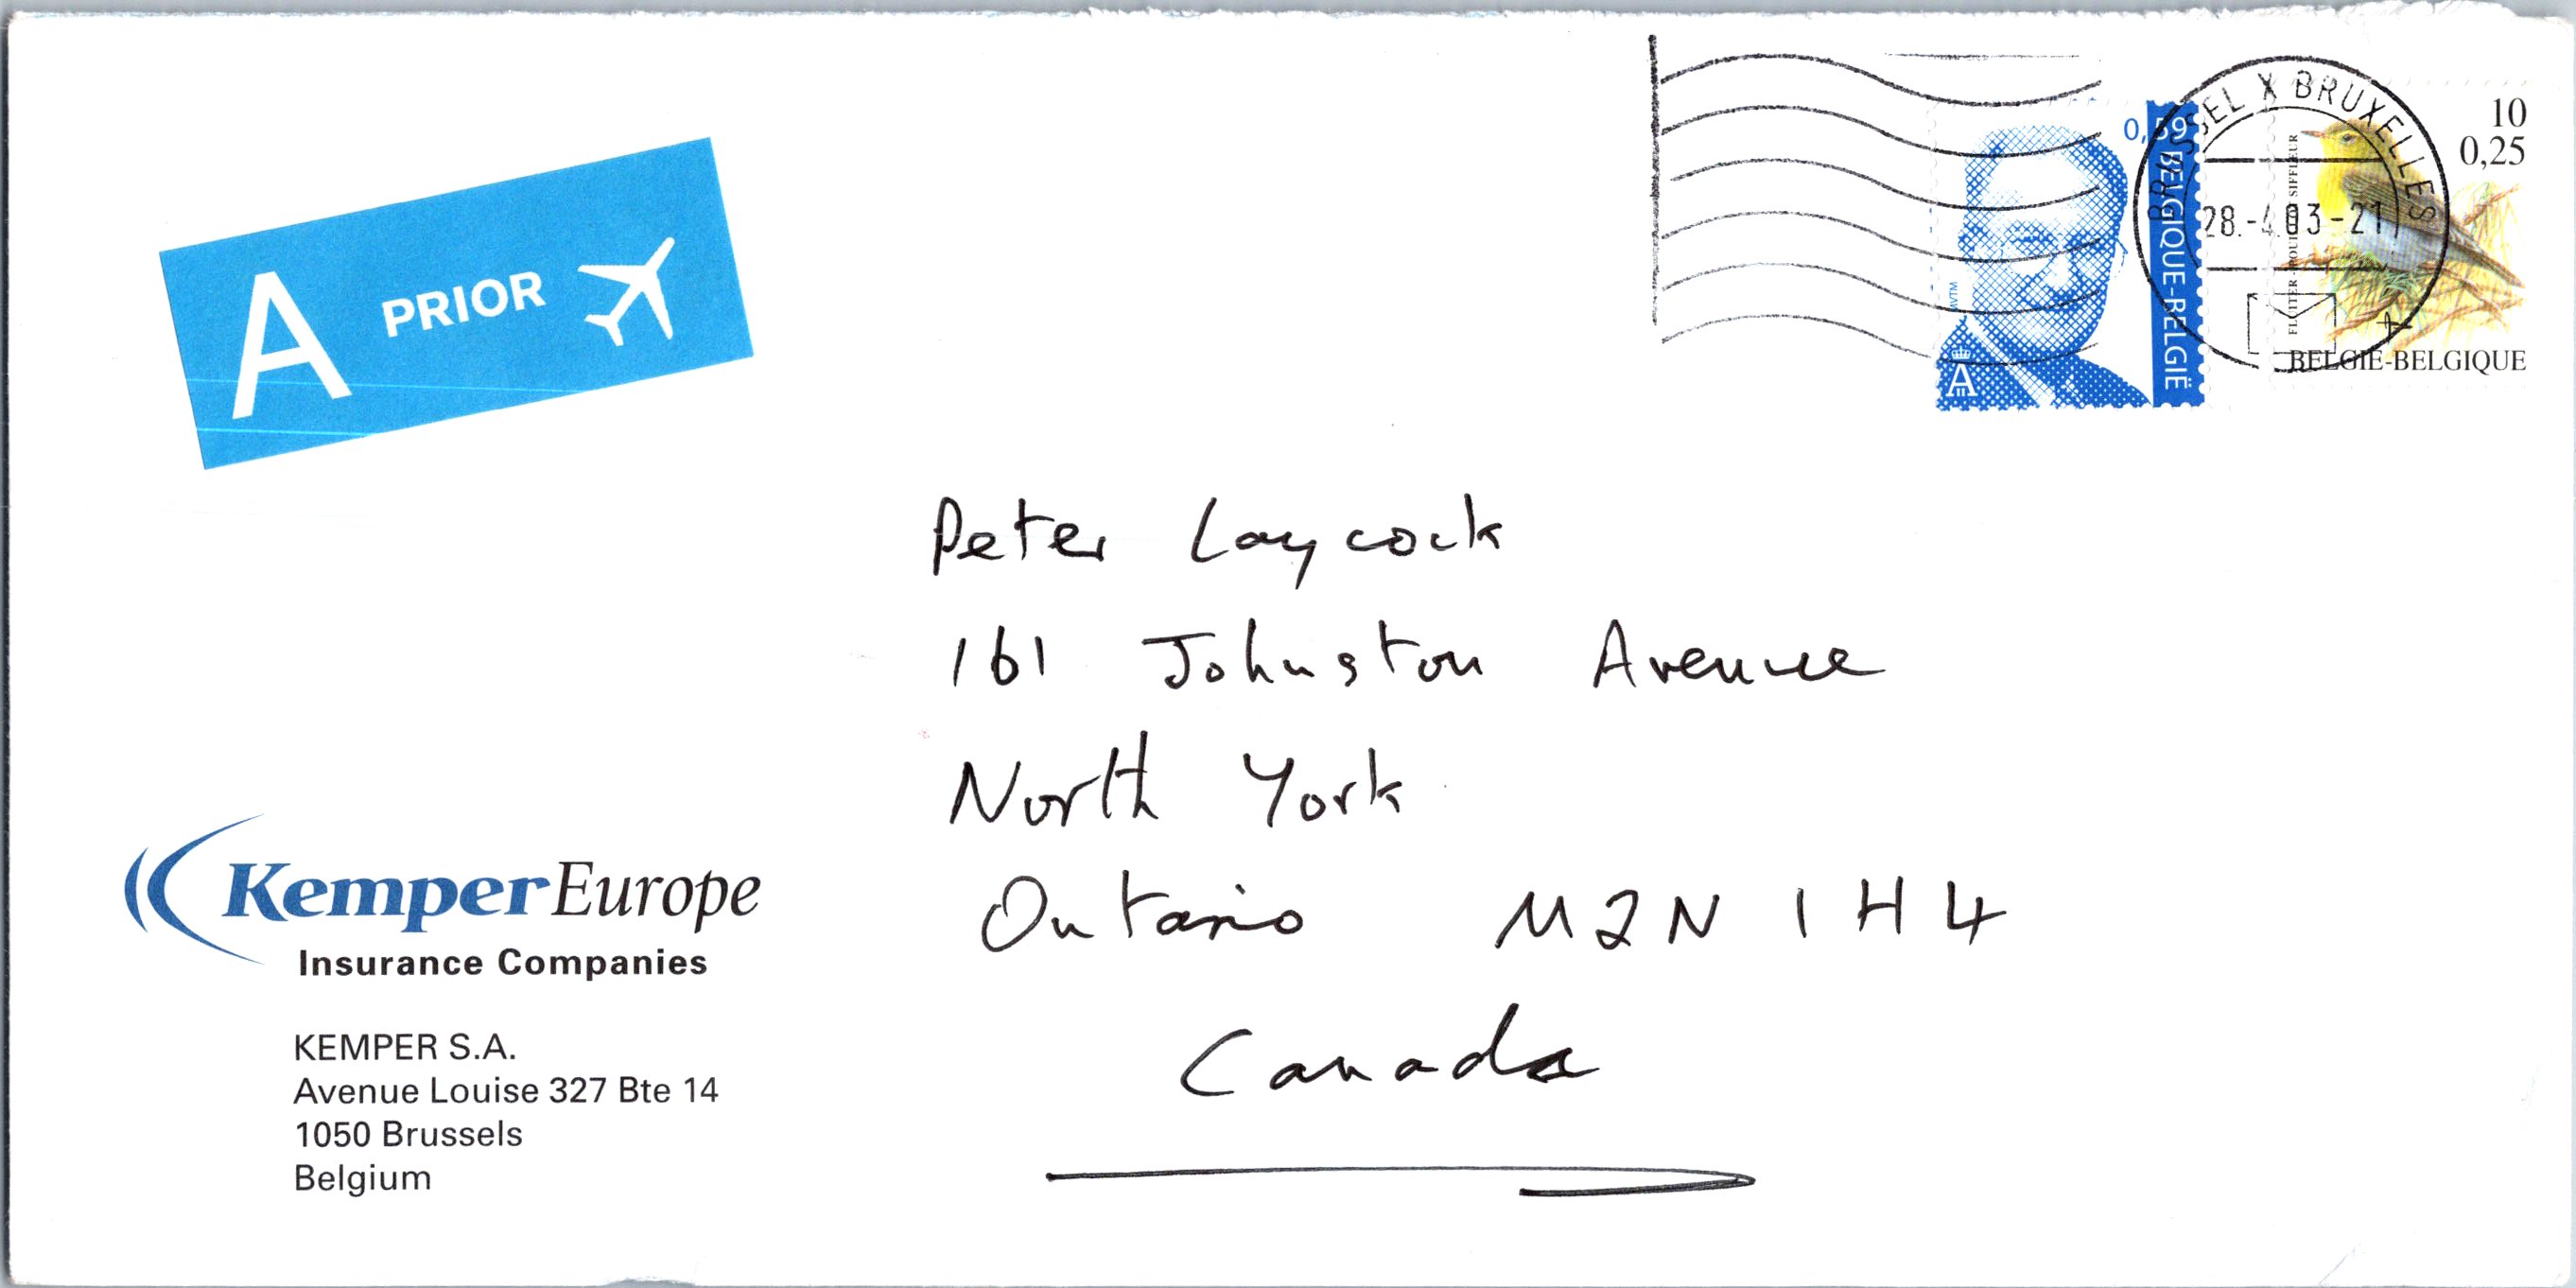 A PRIOR
0,59
BELGIQUE-BELGIË
MVTM
A
BRUSSEL X BRUXELLES
28.-4.03-21
10
0,25
FLUITER POUILLOT SIFFLEUR
BELGIË-BELGIQUE
Peter Laycock
161 Johnston Avenue
North York
Ontario M2N 1H4
Canada
KemperEurope
Insurance Companies
KEMPER S.A.
Avenue Louise 327 Bte 14
1050 Brussels
Belgium